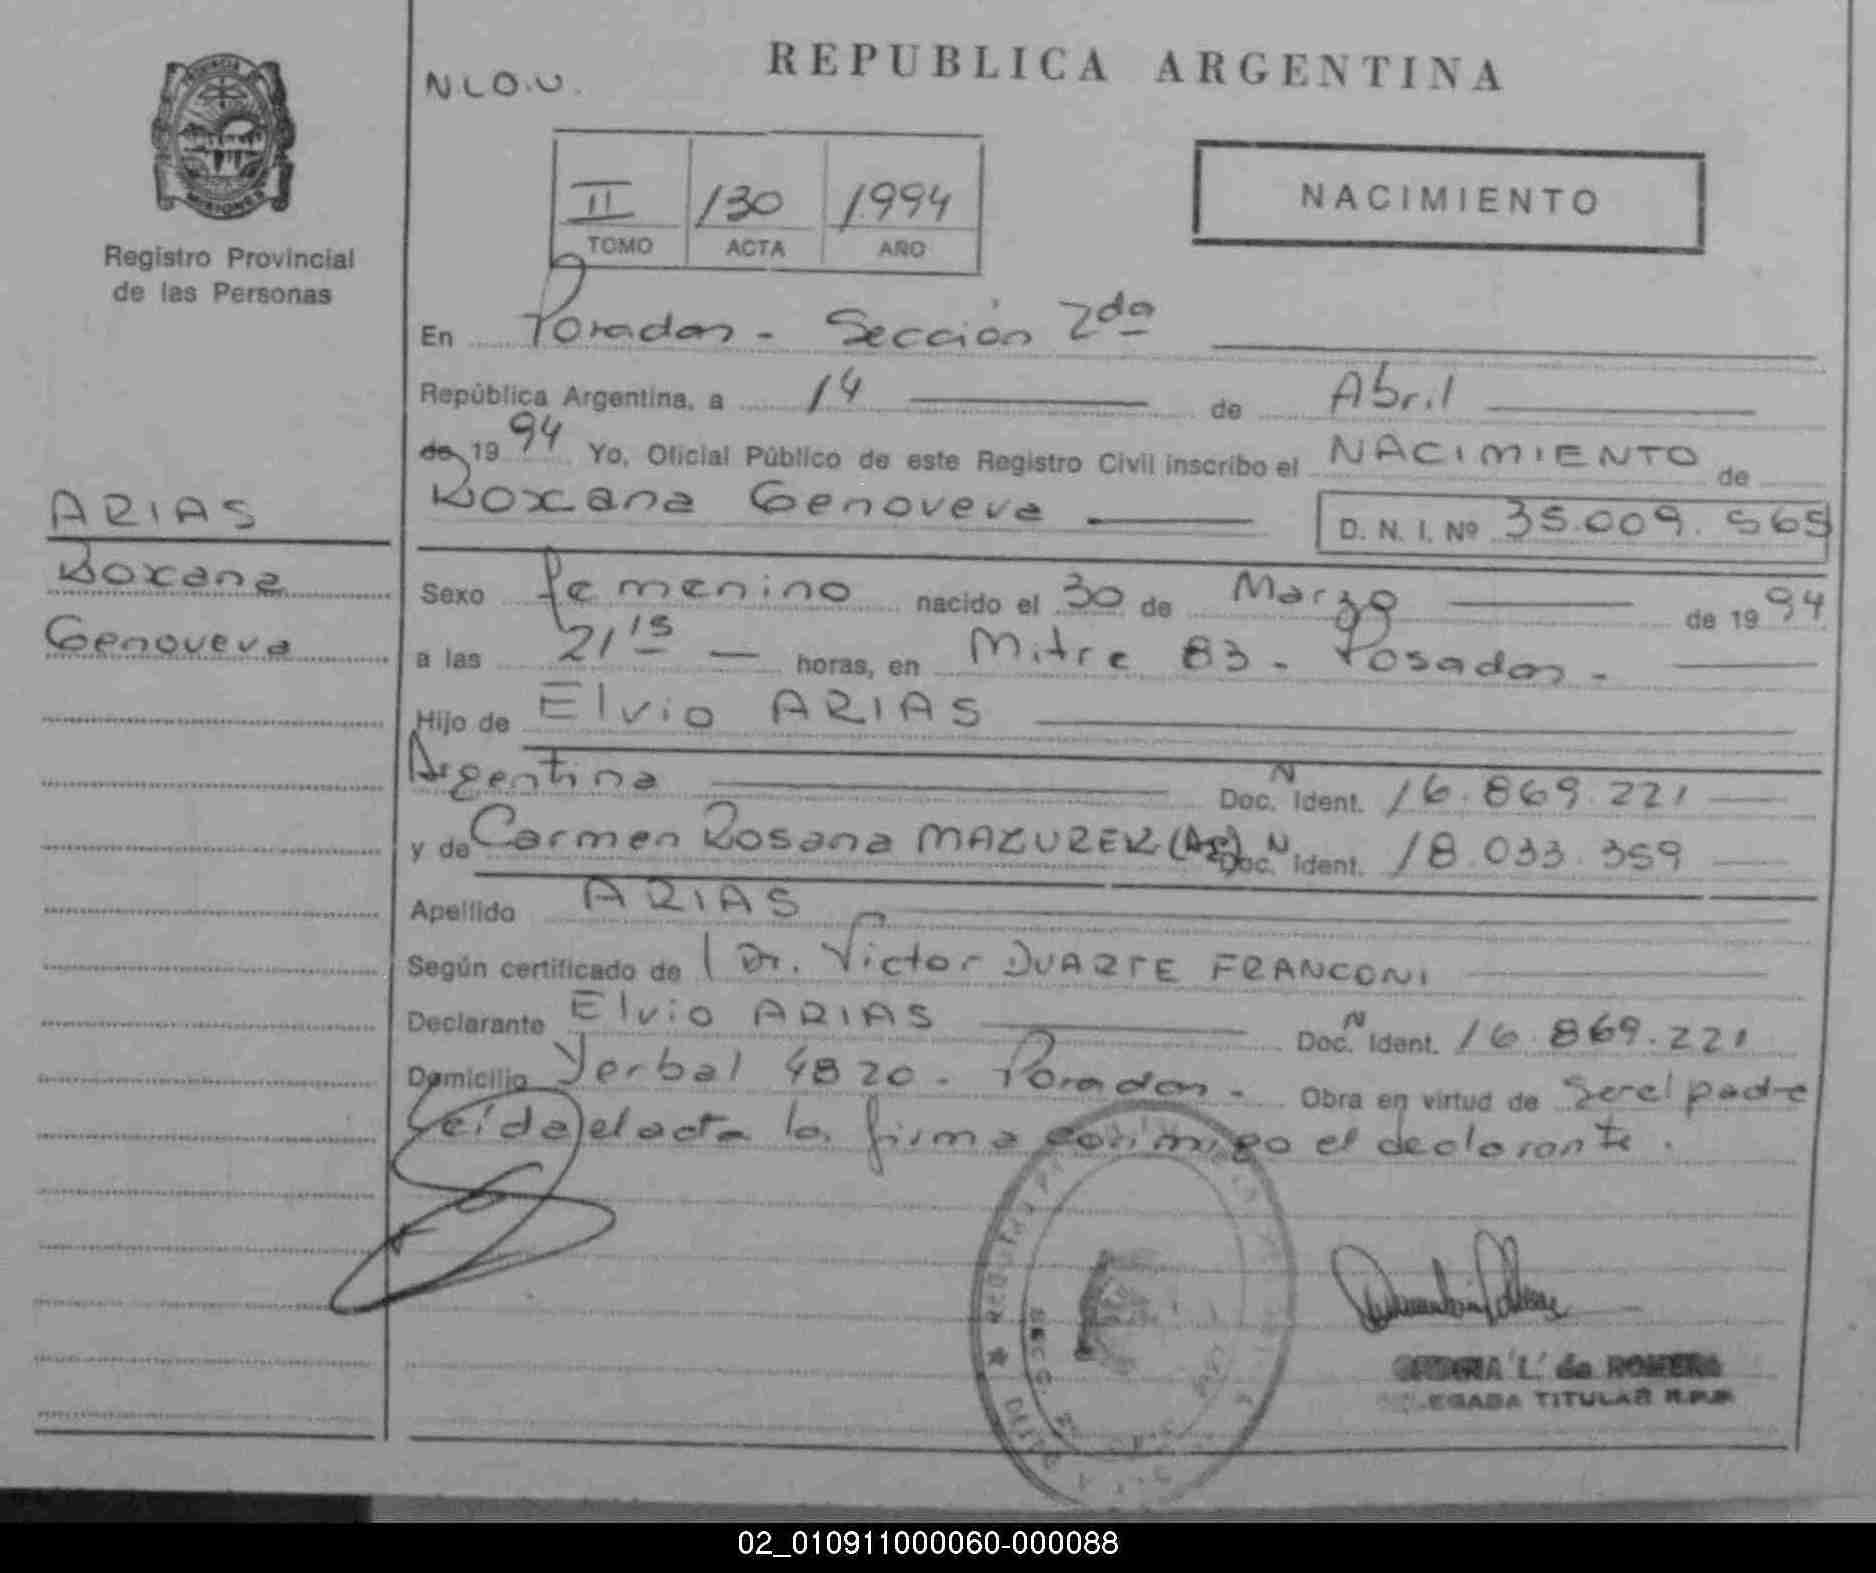 REPUBLICA ARGENTINA
N.L.O.U.
PROVINCIA DE
MISIONES
Registro Provincial
de las Personas
II 130 1994
TOMO ACTA AÑO
NACIMIENTO
En Posadas - Sección 2da
República Argentina, a 14 de Abril
de 19 94 Yo, Oficial Público de este Registro Civil inscribo el NACIMIENTO de
Roxana Genoveva D. N. I. Nº 35.009.565
ARIAS
Roxana
Genoveva
Sexo femenino nacido el 30 de Marzo de 19 94
a las 21 15 horas, en Mitre 83 - Posadas -
Hijo de Elvio ARIAS
Argentina Doc. N Ident. 16.869.221
y de Carmen Rosana MAZUREK (Arg) Doc. N Ident. 18.033.359
Apellido ARIAS
Según certificado de Dr. Victor DUARTE FRANCONI
Declarante Elvio ARIAS Doc. N Ident. 16.869.221
Domicilio Yerbal 4820 - Posadas - Obra en virtud de ser el padre
Leída el acta la firma conmigo el declarante.
SECC. 2a
L. de ROMERA
DELEGADA TITULAR R.P.P.
02_010911000060-000088